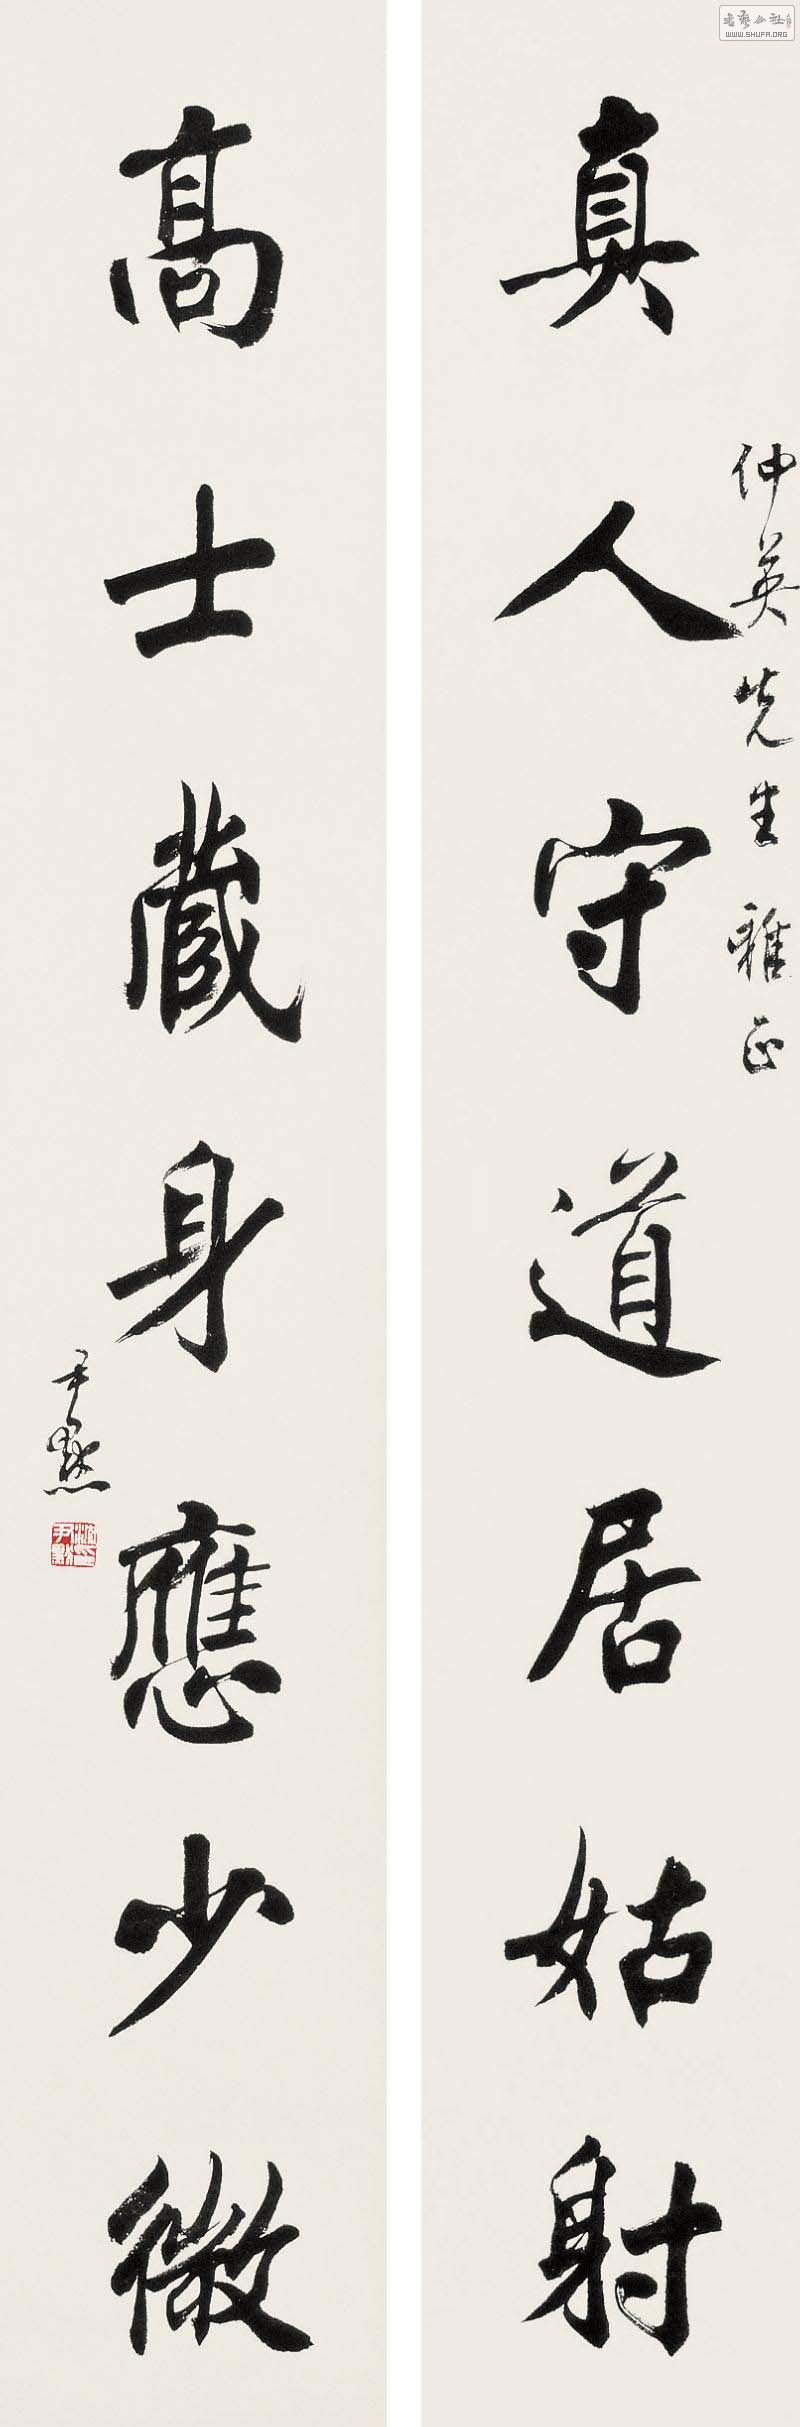 真人守道居姑射
仲英先生雅正
高士藏身應少微
尹默
沈尹默
WWW.SHUFA.ORG